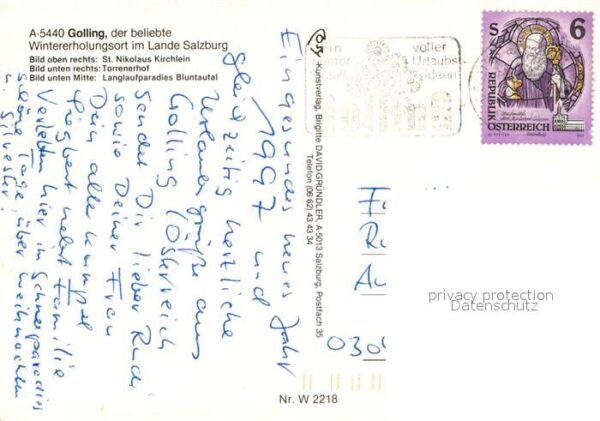 A-5440 Golling, der beliebte
Wintererholungsort im Lande Salzburg
Bild oben rechts: St. Nikolaus Kirchlein
Bild unten rechts: Torrenerhof
Bild unten Mitte: Langlaufparadies Bluntautal
Ein gesundes neues Jahr
1997 und
gleichzeitig herzliche
Urlaubsgrüße aus
Golling (Österreich
sendet Dir lieber Rudi
sowie Deiner Frau
Dein alter Kumpel
nebst Familie
Verlebten hier im Schneeparadies
schöne Tage über Weihnachten
u. Silvester!
-Kunstverlag, Brigitte DAVID-GRÜNDLER, A-5013 Salzburg, Postfach 35
Telefon (06 62) 43 43 34
voller
Urlaubs-
ideen
S 6
REPUBLIK
ÖSTERREICH
privacy protection
Datenschutz
Nr. W 2218